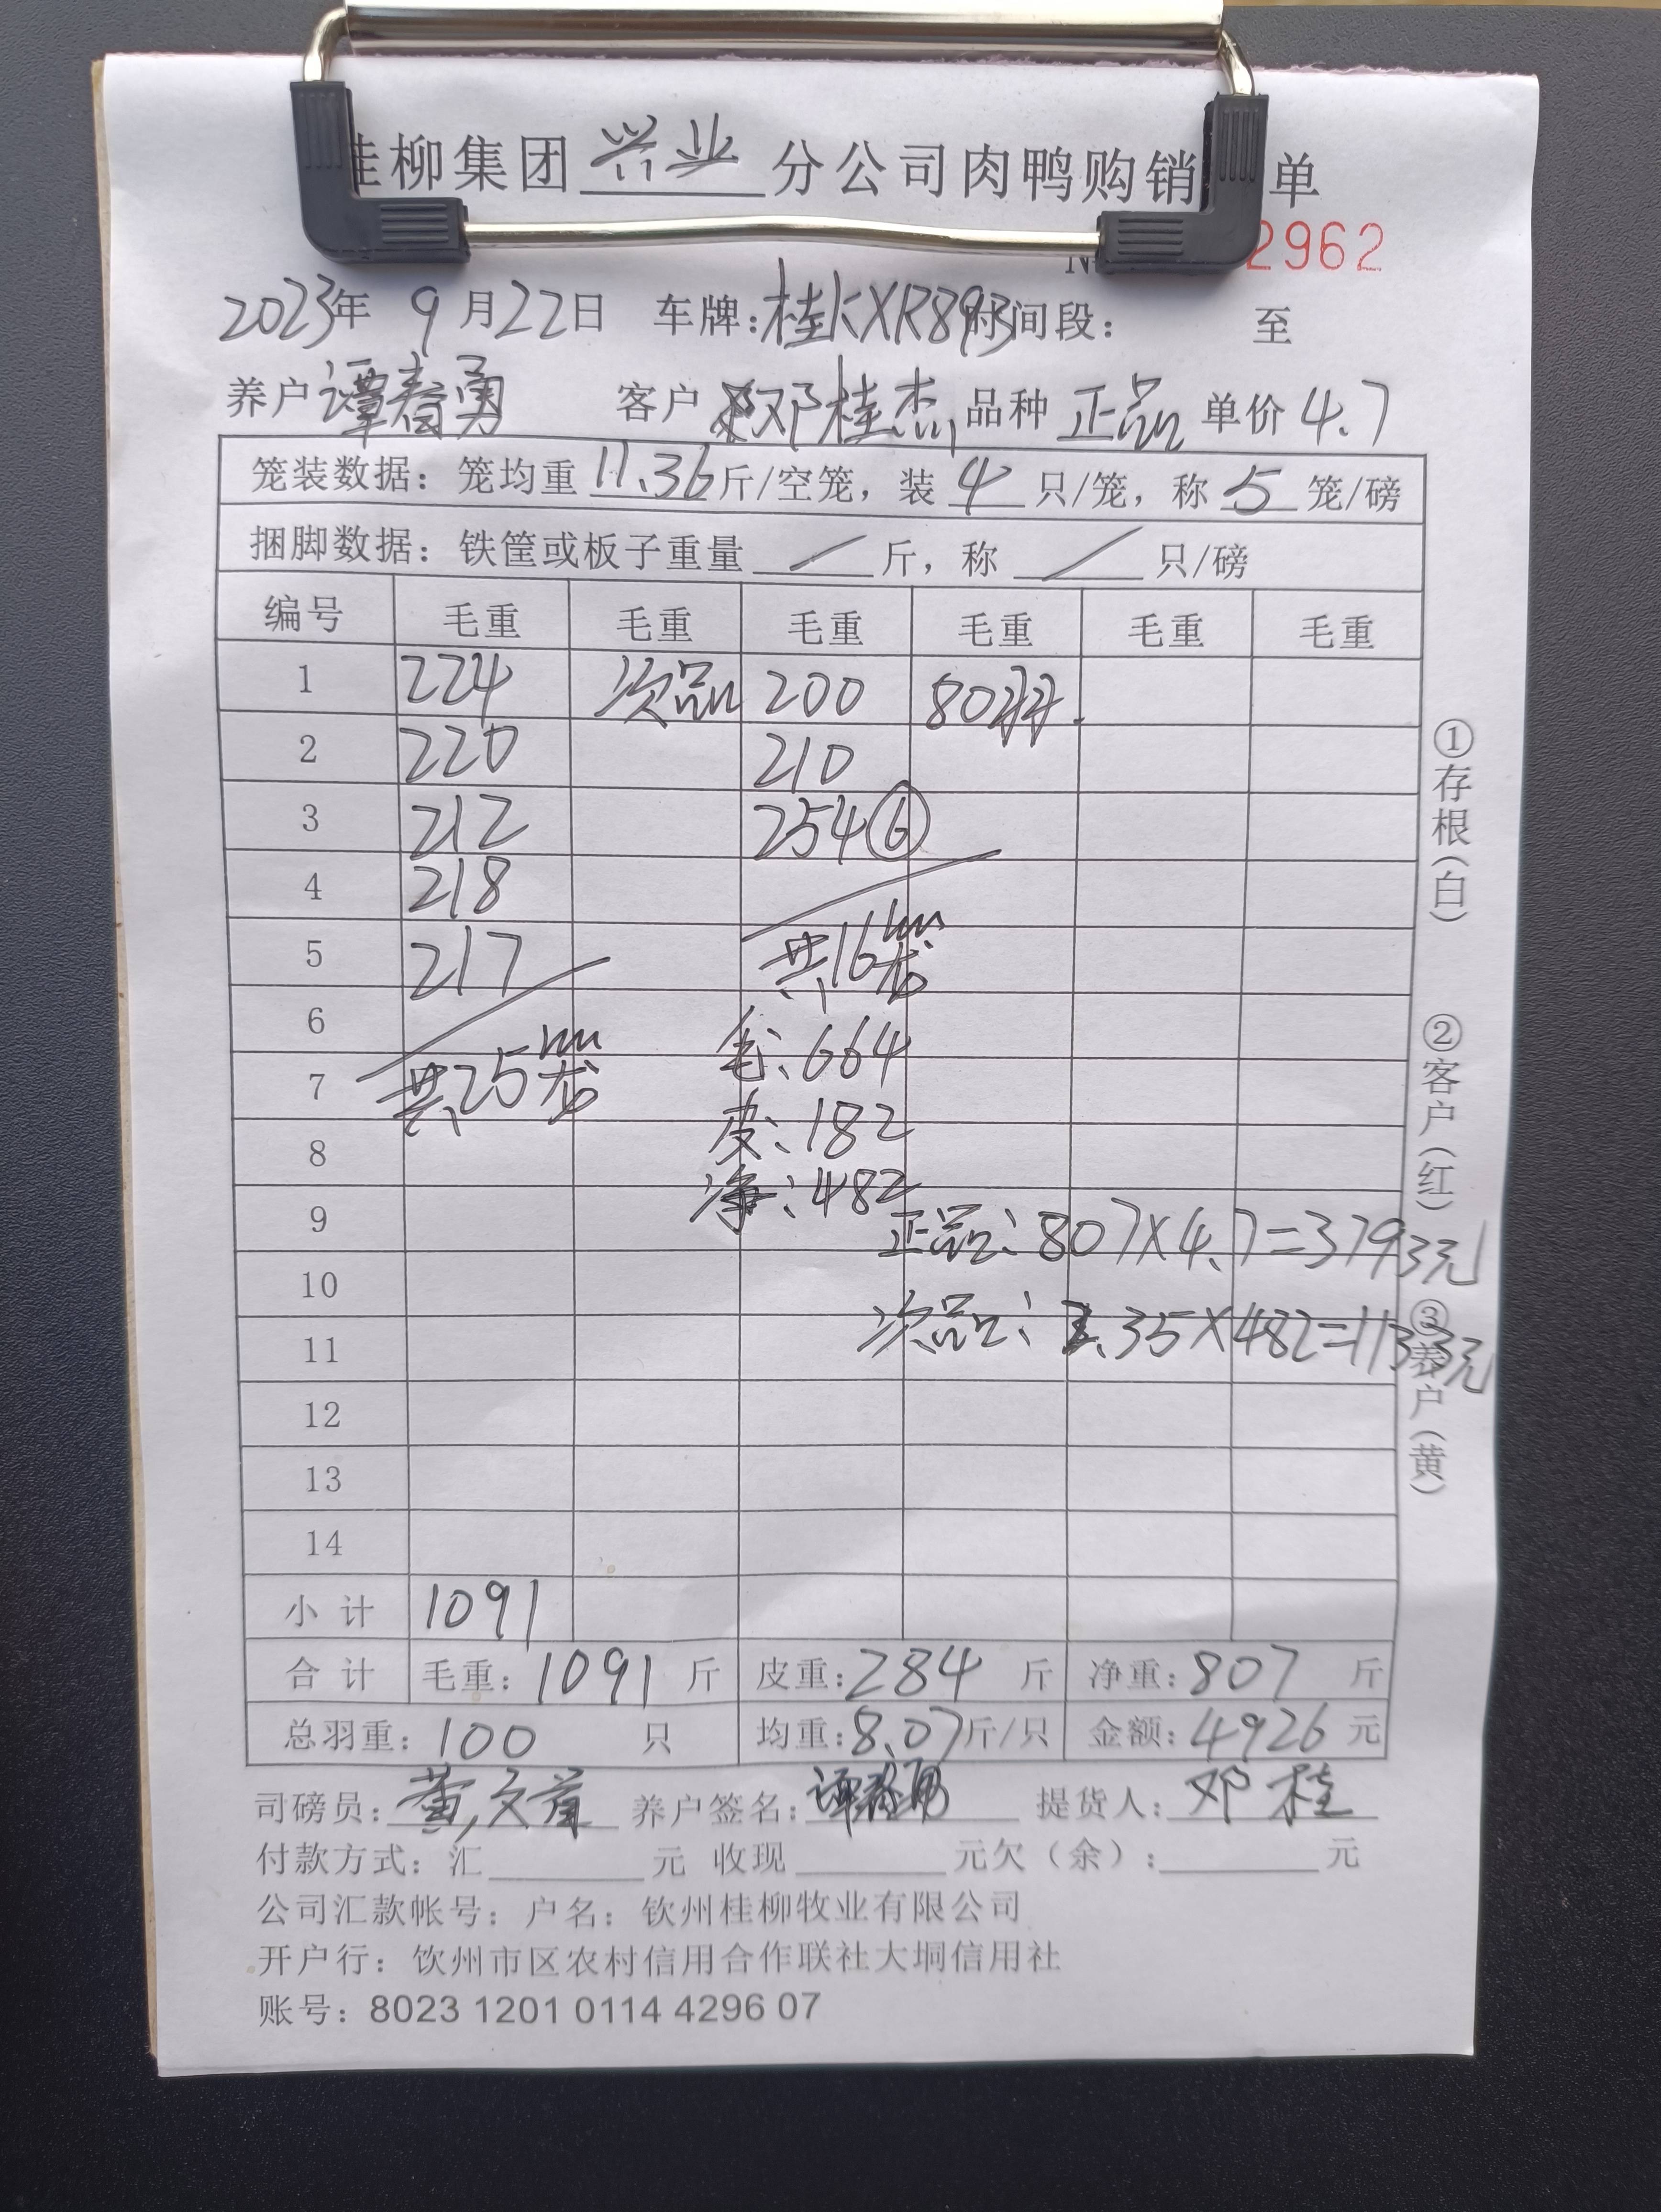 桂柳集团兴业分公司肉鸭购销 单
2962
2023年 9月22日 车牌:桂KXR893时间段: 至
养户谭春勇 客户邓桂杰 品种 正品 单价4.7
笼装数据: 笼均重11.36斤/空笼, 装4只/笼, 称5笼/磅
捆脚数据: 铁筐或板子重量 / 斤, 称 / 只/磅
编号 毛重 毛重 毛重 毛重 毛重 毛重
1 224 次品 200 80羽.
2 220 210
3 212 254⑥
4 218
5 217 共16笼
6 毛:664
7 共25笼 皮:182
8 净:482
9 正品:807×4.7=3793元
10
11 次品:2.35×482=1133元
12
13
14
小计 1091
合计 毛重:1091斤 皮重:284斤 净重:807斤
总羽重:100只 均重:8.07斤/只 金额:4926元
司磅员: 养户签名:谭春勇 提货人:邓桂
付款方式: 汇 元 收现 元欠(余): 元
公司汇款帐号: 户名: 钦州桂柳牧业有限公司
开户行: 钦州市区农村信用合作联社大垌信用社
账号: 8023 1201 0114 4296 07
①存根(白)
②客户(红)
③养户(黄)